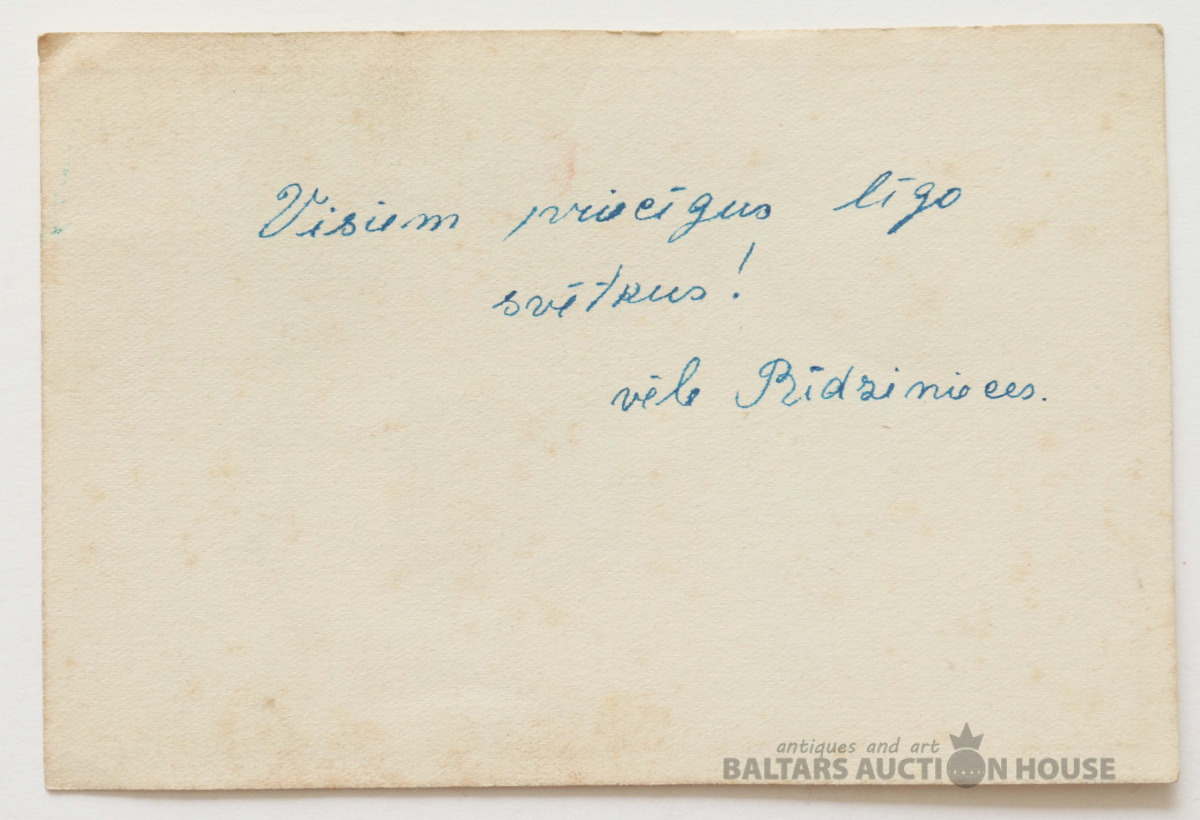 Visiem priecīgus līgo
svētkus!
vēle Rīdzinieces.
antiques and art
BALTARS AUCTION HOUSE